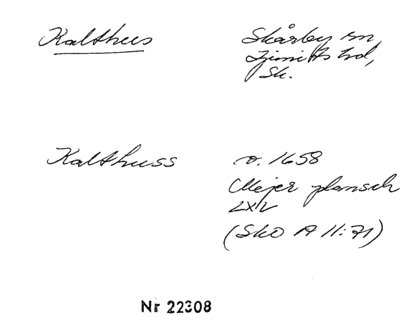 Kalthus Skårby sn,
Ljunits hd,
Sk.
Kalthuss o. 1658
Mejer plansch
LXIV
(Sko A II:71)
Nr 22308